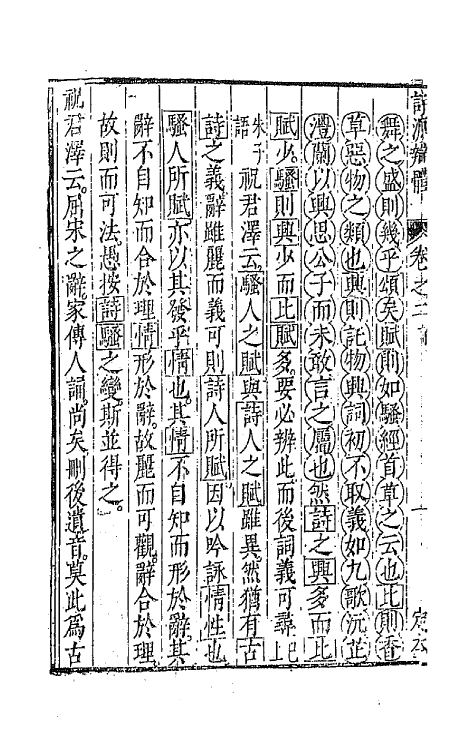 詩源辯體 卷之二
舞之盛則幾乎頌矣賦則如騷經首章之云也比則香
草惡物之類也興則託物興詞初不取義如九歌沅芷
澧蘭以興思公子而未敢言之屬也然詩之興多而比
賦少騷則興少而比賦多要必辨此而後詞義可尋已上
朱子語 祝君澤云騷人之賦與詩人之賦雖異然猶有古
詩之義辭雖麗而義可則詩人所賦因以吟詠情性也
騷人所賦亦以其發乎情也其情不自知而形於辭其
辭不自知而合於理情形於辭故麗而可觀辭合於理
故則而可法愚按詩騷之變斯並得之
祝君澤云屈宋之辭家傳人誦尚矣刪後遺音莫此爲古